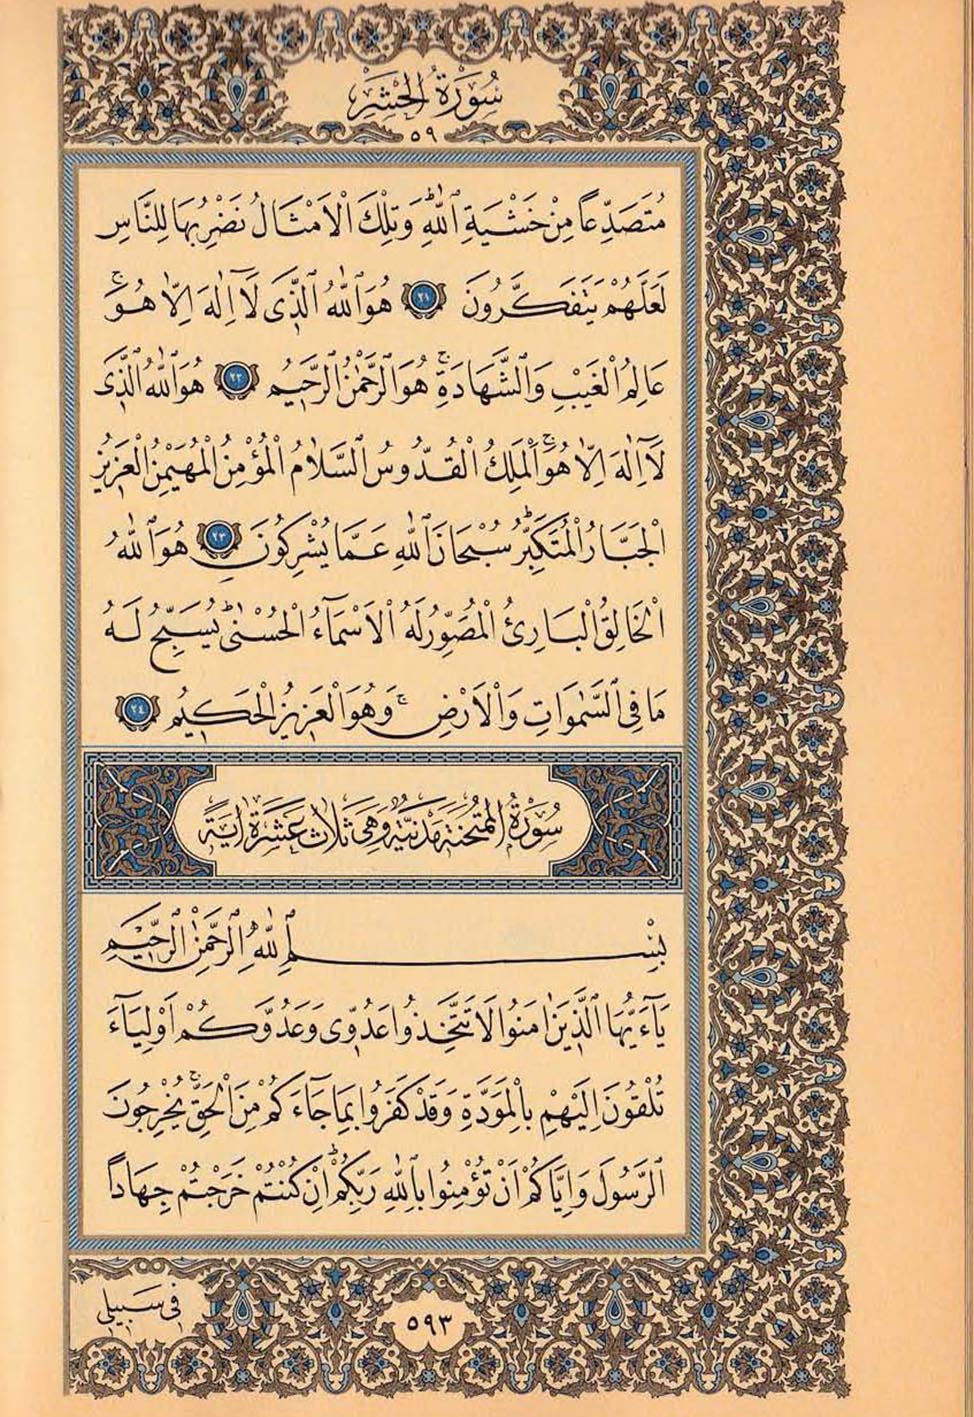 سُورَةُ الْحَشْرِ
٥٩
مُتَصَدِّعاً مِنْ خَشْيَةِ ٱللّٰهِ وَتِلْكَ الْاَمْثَالُ نَضْرِبُهَا لِلنَّاسِ
لَعَلَّهُمْ يَتَفَكَّرُونَ ٢١ هُوَ ٱللّٰهُ ٱلَّذِى لَٓا اِلٰهَ اِلَّا هُوَۚ
عَالِمُ الْغَيْبِ وَالشَّهَادَةِۚ هُوَ الرَّحْمٰنُ الرَّحِيمُ ٢٢ هُوَ ٱللّٰهُ ٱلَّذِى
لَٓا اِلٰهَ اِلَّا هُوَۚ اَلْمَلِكُ الْقُدُّوسُ السَّلَامُ الْمُؤْمِنُ الْمُهَيْمِنُ الْعَزِيزُ
الْجَبَّارُ الْمُتَكَبِّرُۜ سُبْحَانَ ٱللّٰهِ عَمَّا يُشْرِكُونَ ٢٣ هُوَ ٱللّٰهُ
الْخَالِقُ الْبَارِئُ الْمُصَوِّرُ لَهُ الْاَسْمَٓاءُ الْحُسْنٰىۜ يُسَبِّحُ لَهُ
مَا فِى السَّمٰوَاتِ وَالْاَرْضِۚ وَهُوَ الْعَزِيزُ الْحَكِيمُ ٢٤
سُورَةُ الْمُمْتَحِنَةِ مَدَنِيَّةٌ وَهِىَ ثَلَاثَ عَشَرَةَ اٰيَةً
بِسْمِ ٱللّٰهِ الرَّحْمٰنِ الرَّحِيمِ
يَٓا اَيُّهَا ٱلَّذِينَ اٰمَنُوا لَا تَتَّخِذُوا عَدُوِّى وَعَدُوَّكُمْ اَوْلِيَٓاءَ
تُلْقُونَ اِلَيْهِمْ بِالْمَوَدَّةِ وَقَدْ كَفَرُوا بِمَا جَٓاءَكُمْ مِنَ الْحَقِّۚ يُخْرِجُونَ
الرَّسُولَ وَاِيَّاكُمْ اَنْ تُؤْمِنُوا بِاللّٰهِ رَبِّكُمْۜ اِنْ كُنْتُمْ خَرَجْتُمْ جِهَاداً
فِى سَبِيلِى
٥٩٣